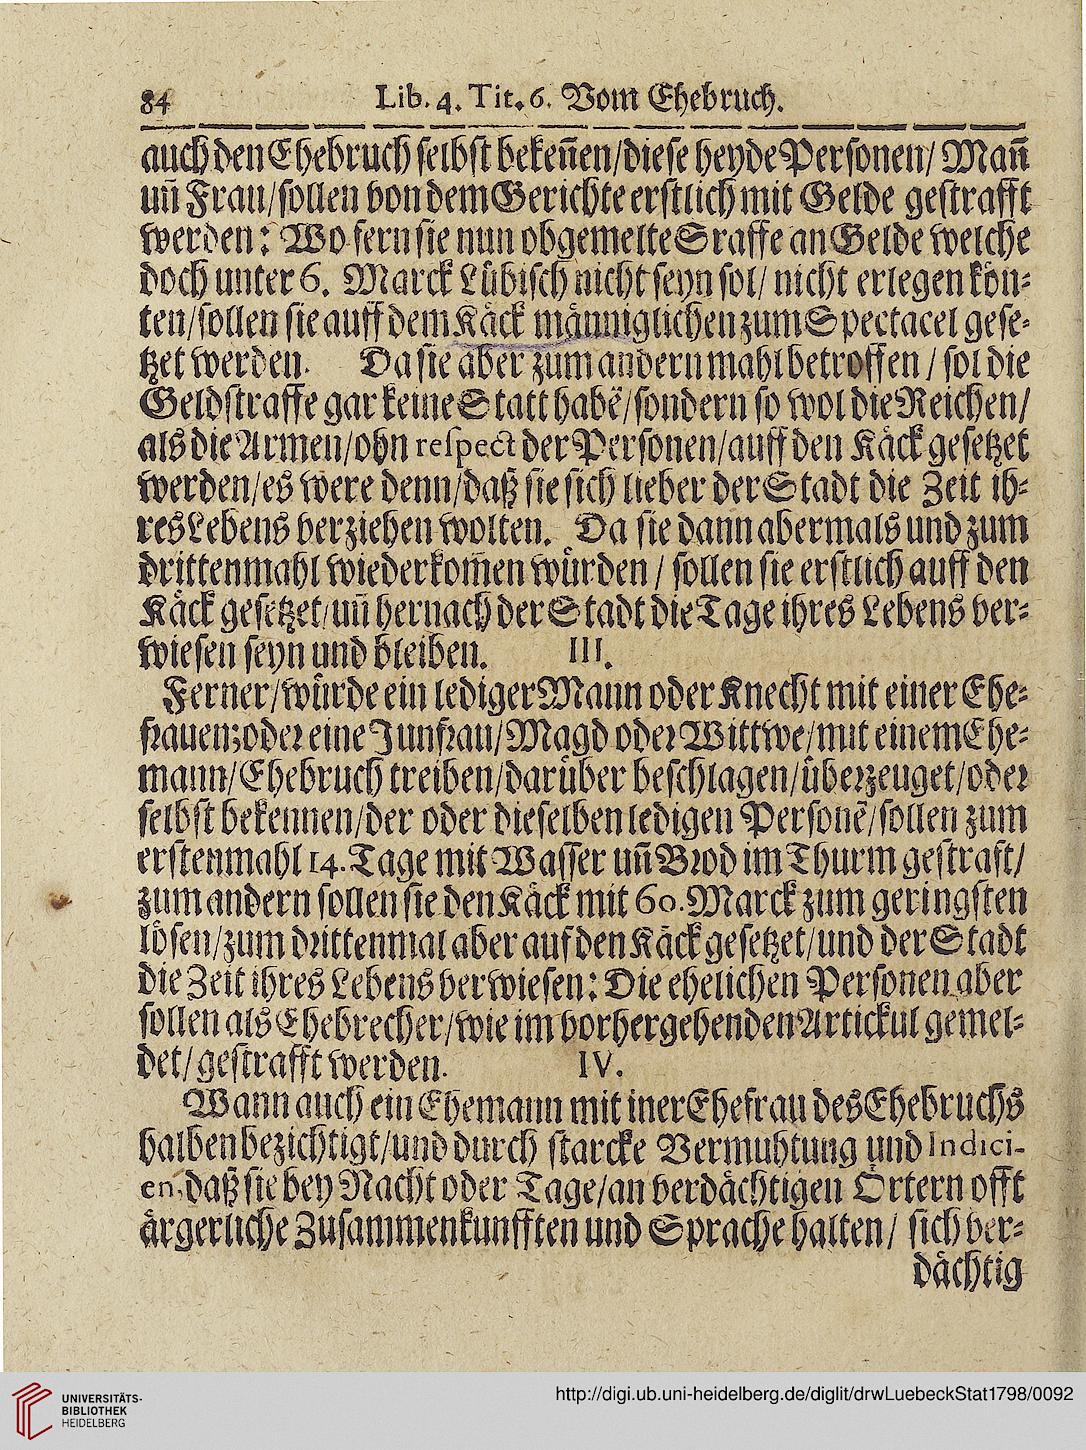 84 Lib. 4. Tit. 6. Vom Ehebruch.
auch den Ehebruch selbst bekeñen/diese beyde Personen/ Mañ
uñ Frau/sollen von dem Gerichte erstlich mit Gelde gestrafft
werden: Wo fern sie nun obgemelte Sraffe an Gelde welche
doch unter 6. Marck Lübisch nicht seyn sol/ nicht erlegen kön-
ten/sollen sie auff dem Käck männiglichen zum Spectacel gese-
tzet werden. Da sie aber zum andern mahl betroffen / sol die
Geldstraffe gar keine Statt habē/sondern so wol die Reichen/
als die Armen/ohn respect der Personen/auff den Käck gesetzet
werden/es were denn/daß sie sich lieber der Stadt die Zeit ih-
res Lebens verziehen wolten. Da sie dann abermals und zum
drittenmahl wiederkom̃en würden / sollen sie erstlich auff den
Käck gesetzet/uñ hernach der Stadt die Tage ihres Lebens ver-
wiesen seyn und bleiben. III.
Ferner/würde ein lediger Mann oder Knecht mit einer Ehe-
frauen;oder eine Junfrau/Magd oder Wittwe/mit einem Ehe-
mann/Ehebruch treiben/darüber beschlagen/überzeuget/oder
selbst bekennen/der oder dieselben ledigen Personē/sollen zum
erstenmahl 14. Tage mit Wasser uñ Brod im Thurm gestraft/
zum andern sollen sie den Käck mit 60. Marck zum geringsten
lösen/zum drittenmal aber auf den Käck gesetzet/und der Stadt
die Zeit ihres Lebens verwiesen: Die ehelichen Personen aber
sollen als Ehebrecher/wie im vorhergehenden Artickul gemel-
det/gestrafft werden. IV.
Wann auch ein Ehemann mit iner Ehefrau des Ehebruchs
halben bezichtigt/und durch starcke Vermuhtung und Indici-
en, daß sie bey Nacht oder Tage/an verdächtigen Örtern offt
ärgerliche Zusammenkunfften und Sprache halten/ sich ver-
dächtig
UNIVERSITÄTS-
BIBLIOTHEK
HEIDELBERG
http://digi.ub.uni-heidelberg.de/diglit/drwLuebeckStat1798/0092